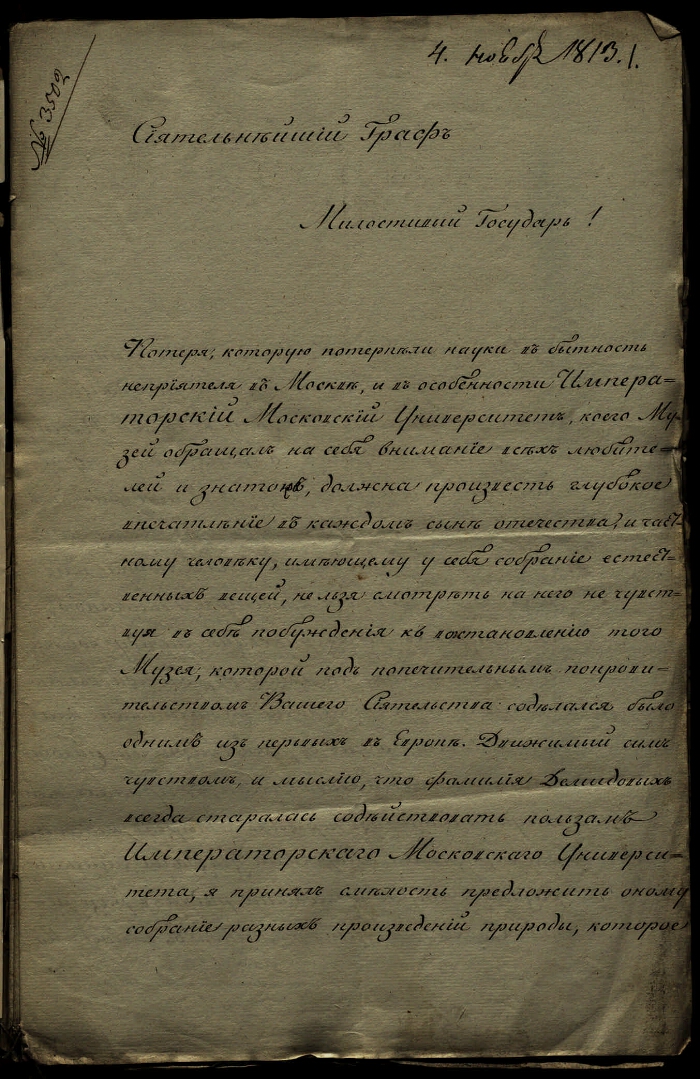 4. ноября 1813. /.
№ 3502
Сіятельнѣйшій Графъ
Милостивый Государь !
Потеря, которую потерпѣли науки въ бытность
непріятеля въ Москвѣ, и въ особенности Импера=
торскій Московскій Университетъ, коего Му-
зей обращалъ на себя вниманіе всѣхъ любите=
лей и знатоковъ, должна произвесть глубокое
впечатлѣніе въ каждомъ сынѣ отечества, и част-
ному человѣку, имѣющему у себя собраніе естест-
венныхъ вещей, нельзя смотрѣть на него не чувст-
вуя въ себѣ побужденія къ возстановленію того
Музея, которой подъ попечительнымъ покрови-
тельствомъ Вашего Сіятельства содѣлался было
однимъ изъ первыхъ въ Европѣ. Движимый симъ
чувствомъ, и мыслію, что фамилія Демидовыхъ
всегда старалась содѣйствовать пользамъ
Императорскаго Московскаго Универси=
тета, я принялъ смѣлость предложить оному
собраніе разныхъ произведеній природы, которое